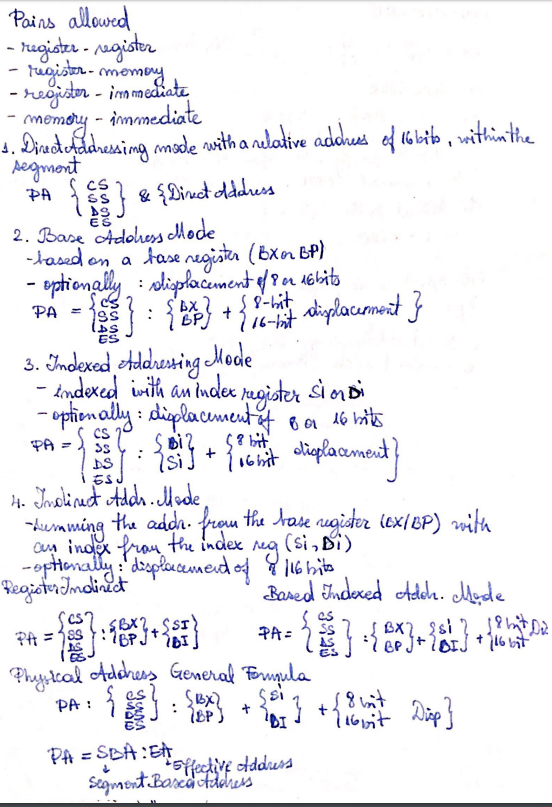 Pairs allowed
- register - register
- register - memory
- register - immediate
- memory - immediate
1. Direct Addressing mode with a relative address of 16 bits, within the
segment
PA { CS SS DS ES } & {Direct Address
2. Base Address Mode
- based on a base register (BX or BP)
- optionally : displacement of 8 or 16 bits
PA = { CS SS DS ES } : { BX BP } + { 8-bit 16-bit displacement }
3. Indexed Addressing Mode
- indexed with an index register Si or Di
- optionally : displacement of 8 or 16 bits
PA = { CS SS DS ES } : { Di Si } + { 8 bit 16 bit displacement }
4. Indirect Addr. Mode
- summing the addr. from the base register (BX/BP) with
an index from the index reg (Si, Di)
- optionally : displacement of 8 / 16 bits
Register Indirect
PA = { CS SS DS ES } : { BX BP } + { SI DI }
Based Indexed Addr. Mode
PA = { CS SS DS ES } : { BX BP } + { Si DI } + { 8 bit 16 bit Di
Physical Address General Formula
PA : { CS SS DS ES } : { BX BP } + { Si DI } + { 8 bit 16 bit Disp }
PA = SBA : EA
Effective Address
Segment Based Address